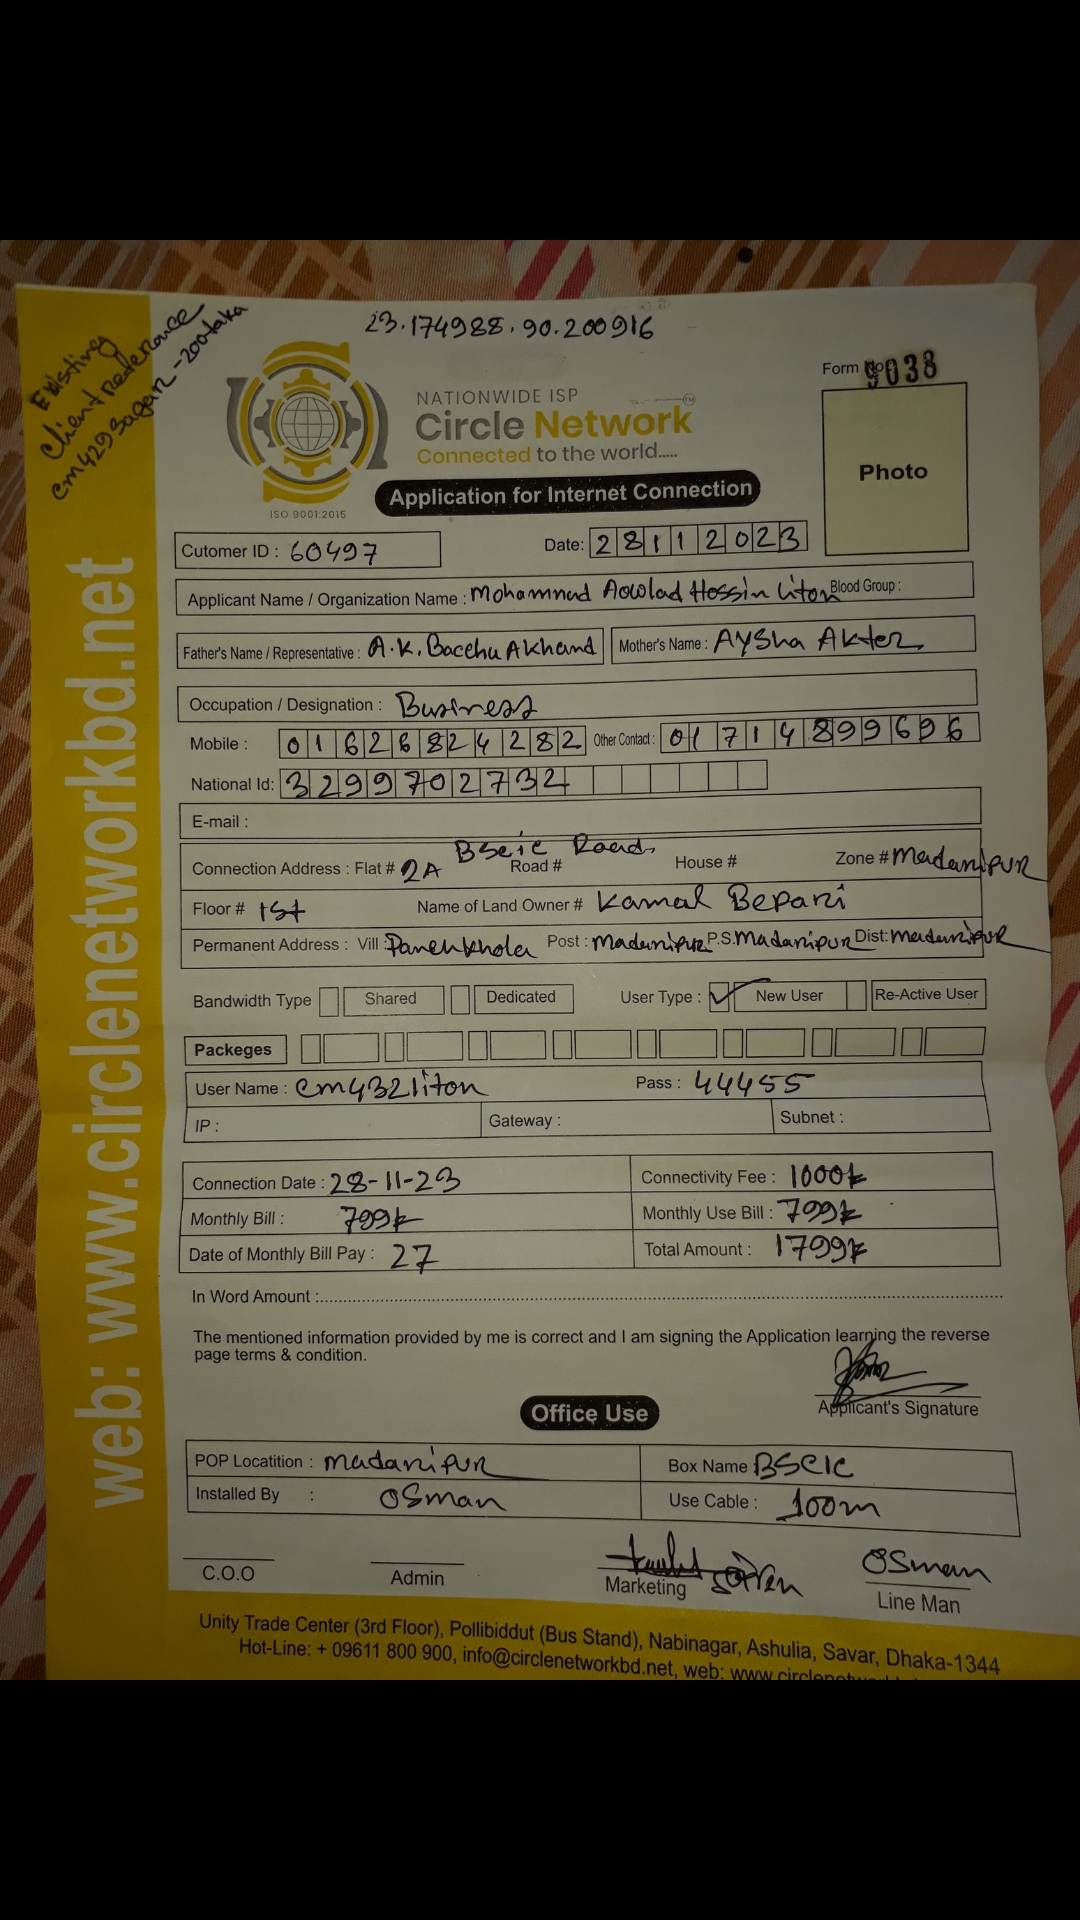 23.174988.90.200916
Existing
Client Reference
cm429 Sagar - 200 taka
Form No 9038
NATIONWIDE ISP
Circle Network TM
Connected to the world.....
ISO 9001:2015
Application for Internet Connection
Photo
Cutomer ID : 60497 Date: 28112023
Applicant Name / Organization Name : Mohammad Aowlad Hossin Liton Blood Group :
Father's Name / Representative : A.K. Bacchu Akhand Mother's Name : Aysha Akter
Occupation / Designation : Business
Mobile : 01626824282 Other Contact : 01714899696
National Id: 3299702732
E-mail :
Connection Address : Flat # 2A Road # Bscic Road House # Zone # Madaripur
Floor # 1st Name of Land Owner # Kamal Bepari
Permanent Address : Vill : Post : Madaripur P.S: Madaripur Dist: Madaripur
Bandwidth Type Shared Dedicated User Type : New User Re-Active User
Packeges
User Name : cm432liton Pass : 44455
IP : Gateway : Subnet :
Connection Date : 28-11-23 Connectivity Fee : 1000tk
Monthly Bill : 799tk Monthly Use Bill : 799tk
Date of Monthly Bill Pay : 27 Total Amount : 1799tk
In Word Amount :
The mentioned information provided by me is correct and I am signing the Application learning the reverse
page terms & condition.
Applicant's Signature
Office Use
POP Locatition : Madaripur Box Name BSCIC
Installed By : Osman Use Cable : 100m
Osman
C.O.O Admin Marketing Line Man
Unity Trade Center (3rd Floor), Pollibiddut (Bus Stand), Nabinagar, Ashulia, Savar, Dhaka-1344
Hot-Line: + 09611 800 900, info@circlenetworkbd.net, web:
web: www.circlenetworkbd.net